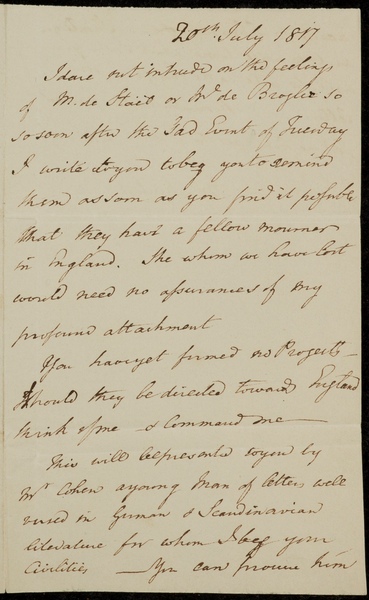 20th July 1817
I dare not intrude on the feelings
of M. de Staël or Me de Broglie so
so soon after the Sad Event of Tuesday
I write to you to beg you to remind
them as soon as you find it possible
that they have a fellow mourner
in England. She whom we have lost
would need no assurances of my
profound attachment
You have yet formed no Projects –
Should they be directed toward England
think of me & Command me –
This will be presented to you by
Mr Cohen a young Man of letters well
versed in German & Scandinavian
literature for whom I beg your
Civilities – You can procure him